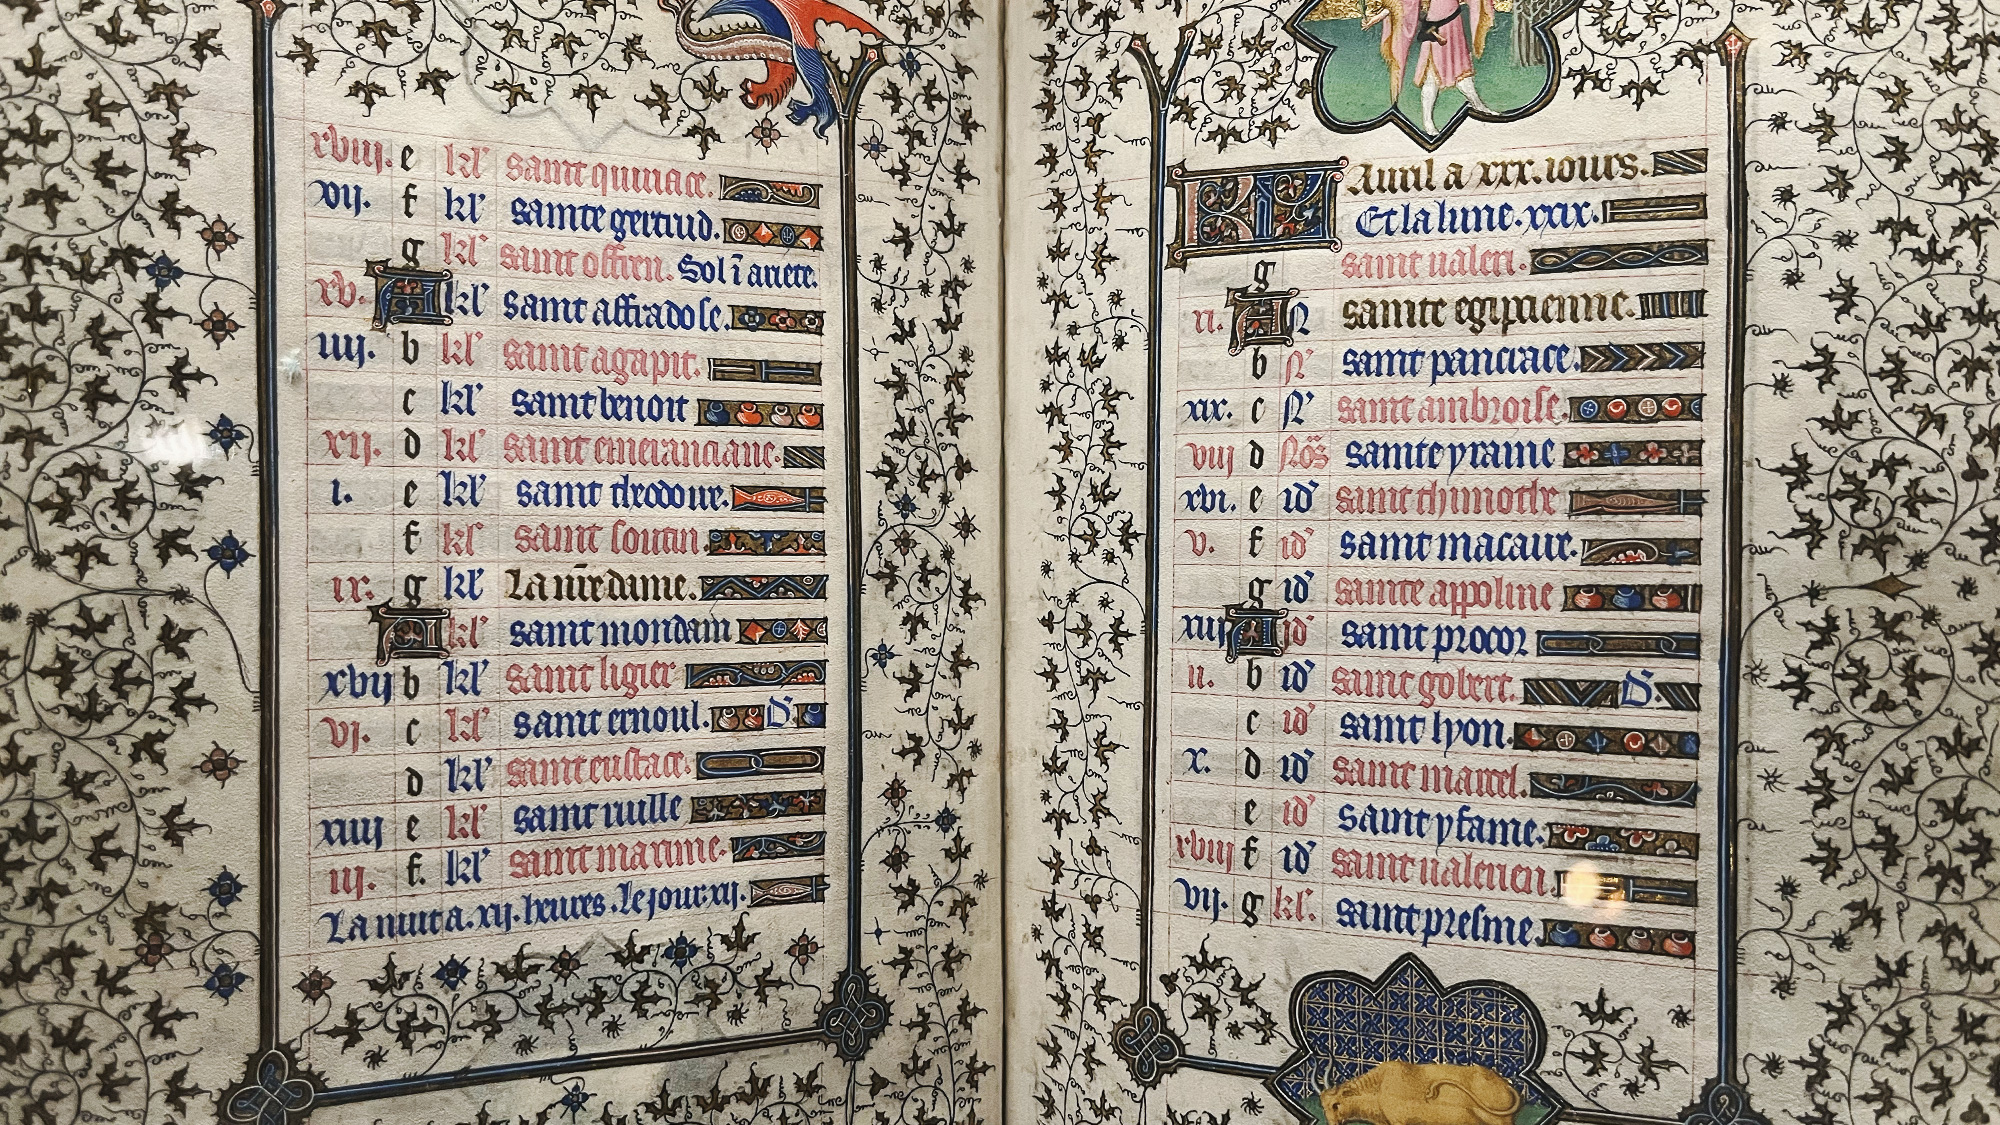 xviii. e kl' saint quiriace.
vii. f kl' sainte gertrud.
g kl' saint offren. Sol ī ariete.
xv. A kl' saint affradose.
iiii. b kl' saint agapit.
c kl' saint benoit
xii. d kl' saint emeranciane.
i. e kl' saint theodore.
f kl' saint soutin.
ix. g kl' La nr̄e dame.
A kl' saint mondain
xvii b kl' saint ligier
vi. c kl' saint ernoul. D.
d kl' saint eustace.
xiiii e kl' saint rulle
iii. f. kl' saint marime.
La nuit a. xii. heures. Le jour. xii.
KL Auril a xxx. iours.
Et la lune. xxix.
g saint ualeri.
xi. A N sainte egiptienne.
b N saint pancrace.
xix. c N saint ambroise.
viii d Nōs sainte yraine
xvi. e id' saint thimothe
v. f id' saint macaire.
g id' sainte appoline
xiii A id' saint procor
ii. b id' saint gobert. D.
c id' saint lyon.
x. d id' saint marcel.
e id' saint yfame.
xviii f id' saint ualerien.
vii. g kl'. saint presme.